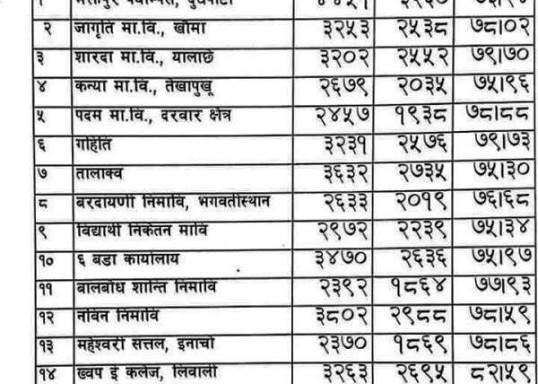 २ जागृति मा.वि., खौमा ३२५३ २५३८ ७८|०२
३ शारदा मा.वि., यालाछे ३२०२ २५५२ ७९|७०
४ कन्या मा.वि., तेखापुखू २६७९ २०३५ ७५|९६
५ पदम मा.वि., दरवार क्षेत्र २४५७ १९३८ ७८|८८
६ गहिति ३२३१ २५७६ ७९|७३
७ तालाक्व ३६३२ २७३५ ७५|३०
८ बरदायणी निमावि, भगवतीस्थान २६३३ २०१९ ७६|६८
९ विद्यार्थी निकेतन मावि २९७२ २२३९ ७५|३४
१० ६ वडा कार्यालाय ३४७० २६३६ ७५|९७
११ बालबोध शान्ति निमावि २३९२ १८६४ ७७|९३
१२ नविन निमावि ३८०२ २९८८ ७८|५९
१३ महेश्वरी सत्तल, इनाचो २३७० १८६९ ७८|८६
१४ ख्वप ई कलेज, लिवाली ३२६३ २६९५ ८२|५९